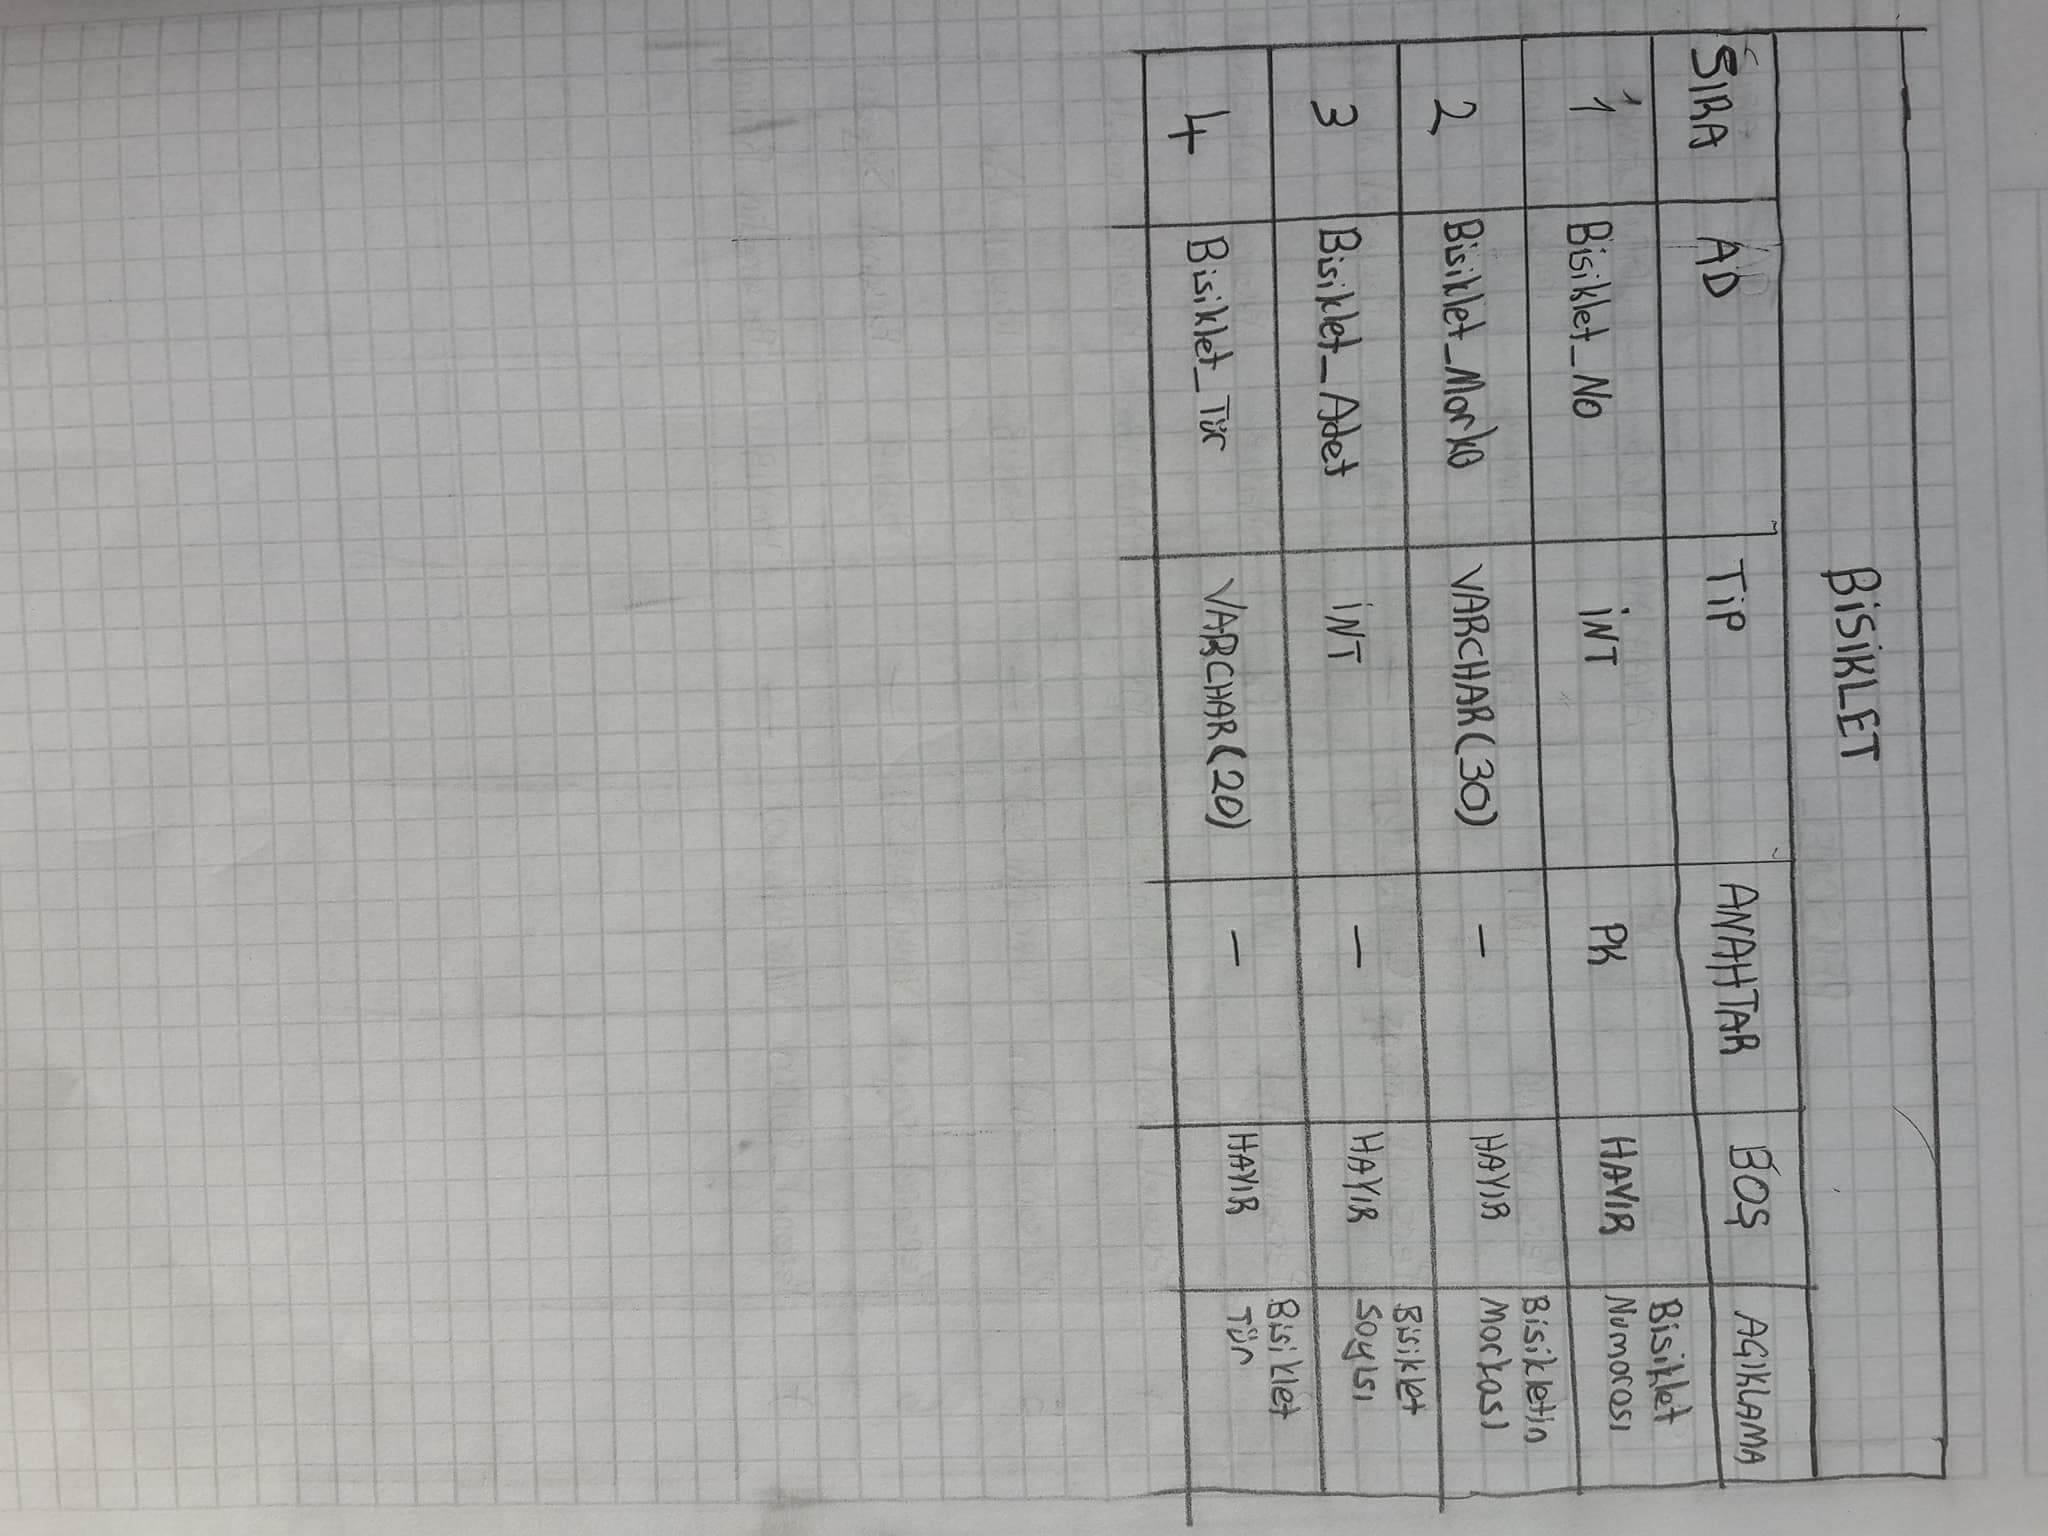 BİSİKLET
SIRA AD TİP ANAHTAR BOŞ AÇIKLAMA
1 Bisiklet_No İNT PK HAYIR Bisiklet
Numarası
2 Bisiklet_Marka VARCHAR(30) — HAYIR Bisikletin
Markası
3 Bisiklet_Adet İNT — HAYIR Bisiklet
Sayısı
4 Bisiklet_Tür VARCHAR(20) — HAYIR Bisiklet
Tür